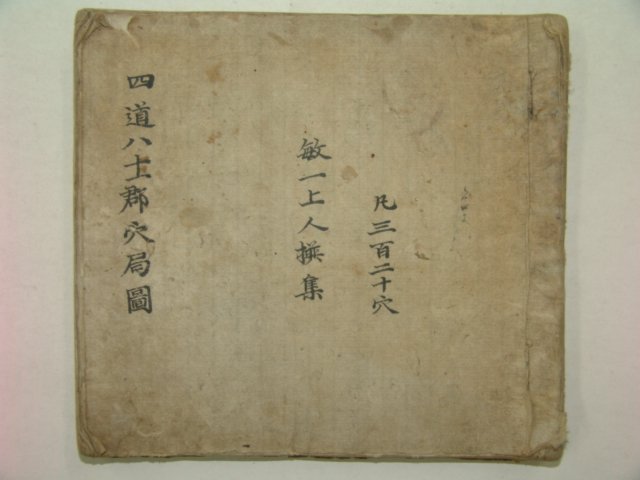 四道八十一郡穴局圖
敏一上人撰集
凡三百二十穴